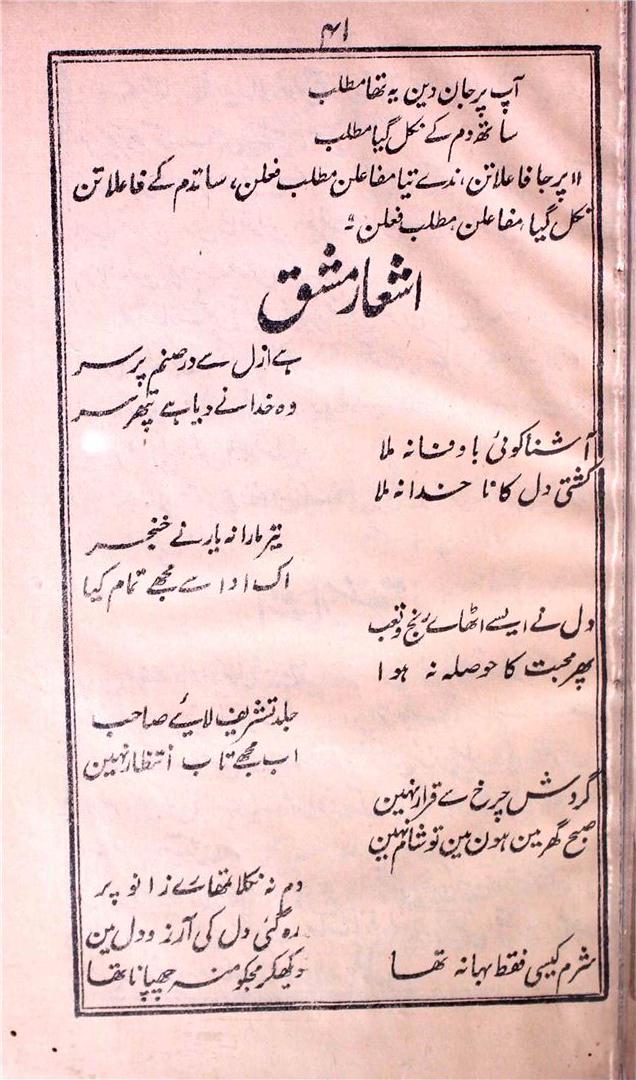 ۴۱
آپ پر جان دین یہ تھا مطلب
ساتھ دم کے نکل گیا مطلب
॥ پر جا فاعلاتن، ندے تیا مفاعلن مطلب فعلن، سا تدم کے فاعلاتن
نکل گیا، مفاعلن، مطلب فعلن؛
اشعار مشق
ہے ازل سے در صنم پر سر
وہ خدا نے دیا ہے پتھر سر
آشنا کوئی با وفا نہ ملا
کشتی دل کا نا خدا نہ ملا
تیر مارا نہ یار نے خنجر
اک ادا سے مجھے تمام کیا
دل نے ایسے اٹھاے رنج وتعب
پھر محبت کا حوصلہ نہ ہوا
جلد تشریف لایٔے صاحب
اب مجھے تاب انتظار نہین
گردش چرخ سے قرار نہین
صبح گھر مین ہون مین تو شام نہین
دم نہ نکلا تمھارے زانو پر
رہ گئی دل کی آرزو دل مین
شرم کیسی فقط بہانہ تھا
دیکھکر مجکو منہ چھپانا تھا